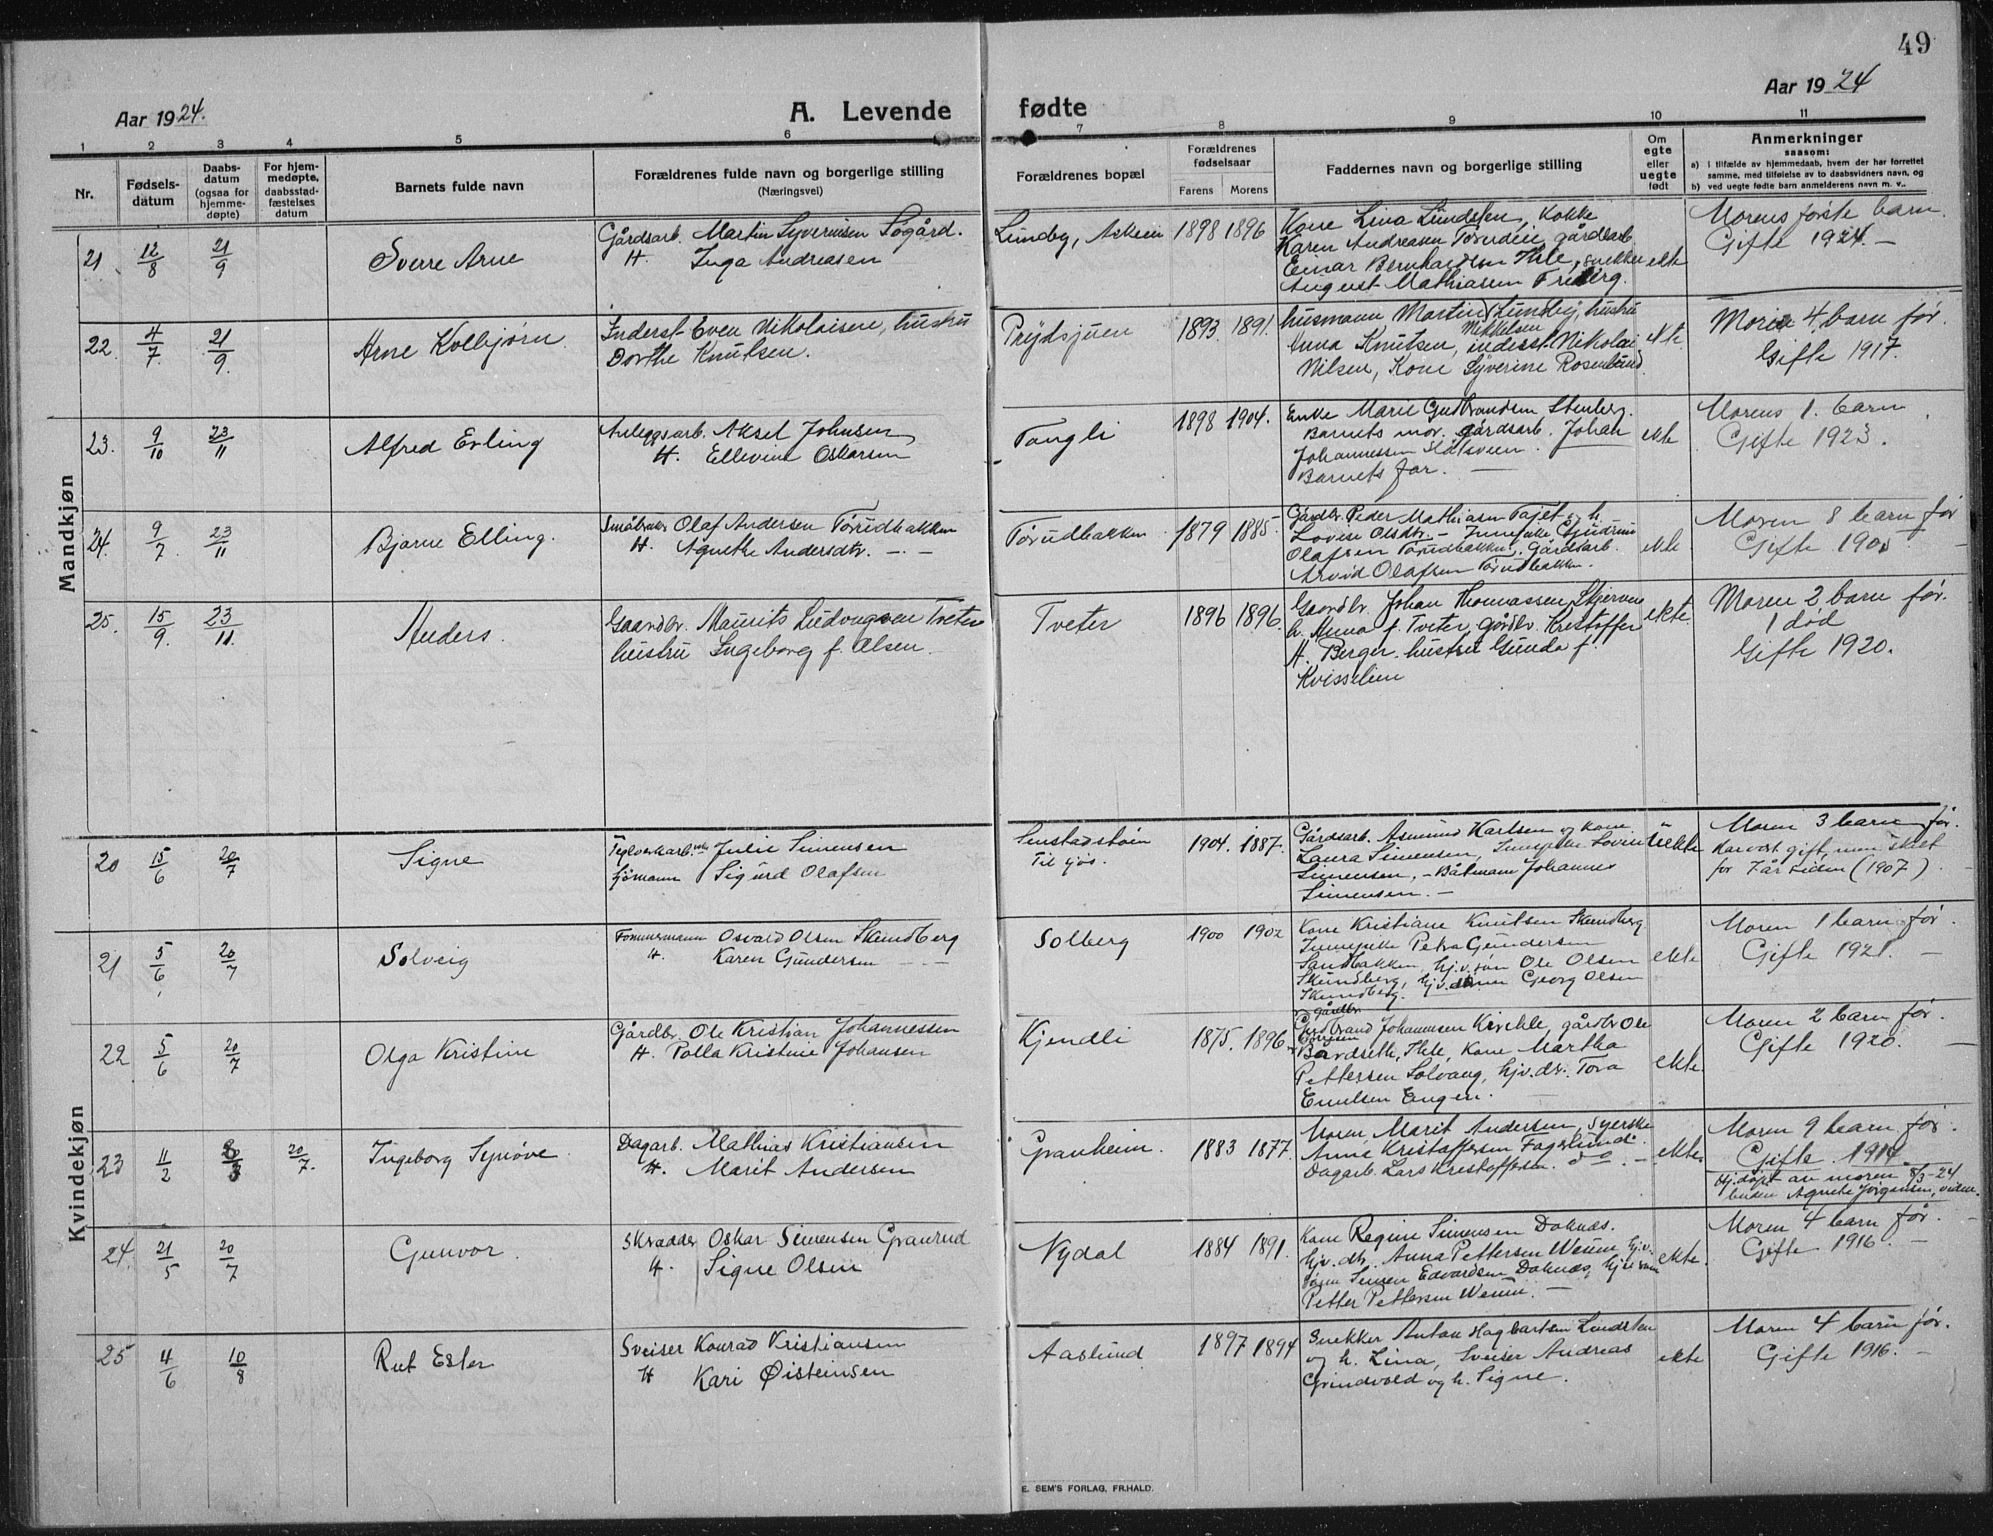 49
Aar 1924.
A. Levende fødte
Aar 1924
1 2 3 4 5 6 7 8 9 10 11
Nr.
Fødsels-
datum
Daabs-
datum
(ogsaa for
hjemme-
døpte)
For hjem-
medøpte,
daabsstad-
fæstelses
datum
Barnets fulde navn
Forældrenes fulde navn og borgerlige stilling
(Næringsvei)
Forældrenes bopæl
Forældrenes
fødselsaar
Farens Morens
Faddernes navn og borgerlige stilling
Om
egte
eller
uegte
født
Anmerkninger
saasom:
a) i tilfælde av hjemmedaab, hvem der har forrettet
samme, med tilføielse av to daabsvidners navn, og
b) ved uegte fødte barn anmelderens navn m. v..
Mandkjøn
21 12/8 21/9 Sverre Arne
Gårdsarb. Martin Syvernsen Sogård.
H. Inga Andreasen
Lundby, Aasen 1898 1896
Kone Lina Lundsten, Kokke
Karen Andreasen gårdsarb.
Einar Bernhardsen Ihle, snekker
August Mathiasen Friberg.
ekte
Morens første barn.
Gifte 1924. —
22. 4/7. 21/9. Arne Kolbjørn
Inderst Even Nikolaisen, hustru
Dorthe Knutsen.
Prydsjuen 1893. 1891.
husmann Martin Lundby, hustru
Mikkelsen
Anna Knutsen, inderst Nikolai
Nilsen, Kone Syverine Rosenlund.
ekte
Moren 4 barn før.
Gifte 1917.
23. 9/10 23/11 Alfred Erling
Anleggsarb. Aksel Johnsen
H. Ellevine Oskarsen
Tangli 1898 1904.
Enke Marie Gudbrandsen Stenberg.
Barnets mor. gårdsarb. Johan
Johannessen
Barnets far. —
ekte
Morens 1. barn.
Gifte 1923.
24. 9/7. 23/11 Bjarne Elling.
Småbruker Olaf Andersen Tørudbakken
H. Agnethe Andersdtr. — . —
Tørudbakken 1879 1885
Gårdbr. Peder Mathiasen Fajet og h.
Lovise Olsdtr. — Inmepike Gjudrun
Olafsen Tørudbakken. Gårdsarb.
Arvid Olafsen Tørudbakken.
ekte
Moren 8 barn før
Gifte
25. 15/9. 23/11. Anders.
Gaardbr. Maurits Ludvigsen Tveter
hustru Ingeborg f. Olsen.
Tveter 1896 1896.
Gaardbr. Johan Thomassen Skjerven
h. Anna f. Tveter, gårdbr. Kristoffer
H. Berger. hustru Gunda f.
Kvisselien
ekte.
Moren 2 barn før.
1 død
Gifte 1920.
Kvindekjøn
20 15/6 20/7 Signe
Teglverkarb.ske Julie Simensen
sjømann Sigurd Olafsen
Til sjøs. 1904. 1887.
Gårdsarb. Asmund Karlsen og kone
Laura Simensen,
Simensen, — Båtmann Johannes
Simensen. —
uekte
Moren 3 barn før.
Har vært gift, men skilt
for 7 år siden (1907)
21 5/6 20/7 Solveig
Tømmermann Osvald Olsen Skundberg
H. Karen Gundersen — . —
Solberg 1900 1902
Kone Kristiane Knutsen Skundberg
Petra Gundersen
Sandbakken, hj.v.søn Ole Olsen
Skundberg, Georg Olsen
Skundberg.
ekte
Moren 1 barn før.
Gifte 1921. —
22 5/6 20/7 Olga Kristine
Gårdbr. Ole Kristian Johannessen
H. Polla Kristine Johansen
Kjendli 1875. 1896
gårdbr.
Gudbrand Johannesen, gårdbr Ole
Bårdseth, Ihle, Kone Martha
Pettersen Solvang, hjv.dr. Tora
Emilsen Engen. —
ekte.
Moren 2 barn før.
Gifte 1920. —
23 11/2 20/7. Ingeborg Synøve.
Dagarb. Mathias Kristiansen
H. Marit Andersen
Granheim. 1883 1877.
Moren Marit Andersen, syerske
Anne Kristoffersen Fagerlund.
Dagarb. Lars Kristoffersen. do. —
ekte.
Moren 9 barn før.
Gifte 1914.
Hj.døpt av moren 8/3-24
Agnete Jørgensen,
24. 21/5 20/7 Gunvor.
Skrædder Oskar Simensen Granrud
H. Signe Olsen
Nydal 1884 1891.
Kone Regine Simensen Doknæs.
hjv.dtr. Anna Pettersen Wenni hj.v.
Simen Edvardsen Doknæs, hj.v.søn
Petter Pettersen Wenni. —
ekte.
Moren 4 barn før.
Gifte 1916. —
25 4/6 10/8 Rut Ester
Sveiser Konrad Kristiansen
H Kari Øisteinsen
Aaslund 1897 1894
Snekker Anton Hagbartsen Lundsten
og h. Lina, sveiser Andreas
Grindvold og h. Signe.
ekte
Moren 4 barn før.
Gifte 1916. —
E. SEM'S FORLAG, FR.HALD.